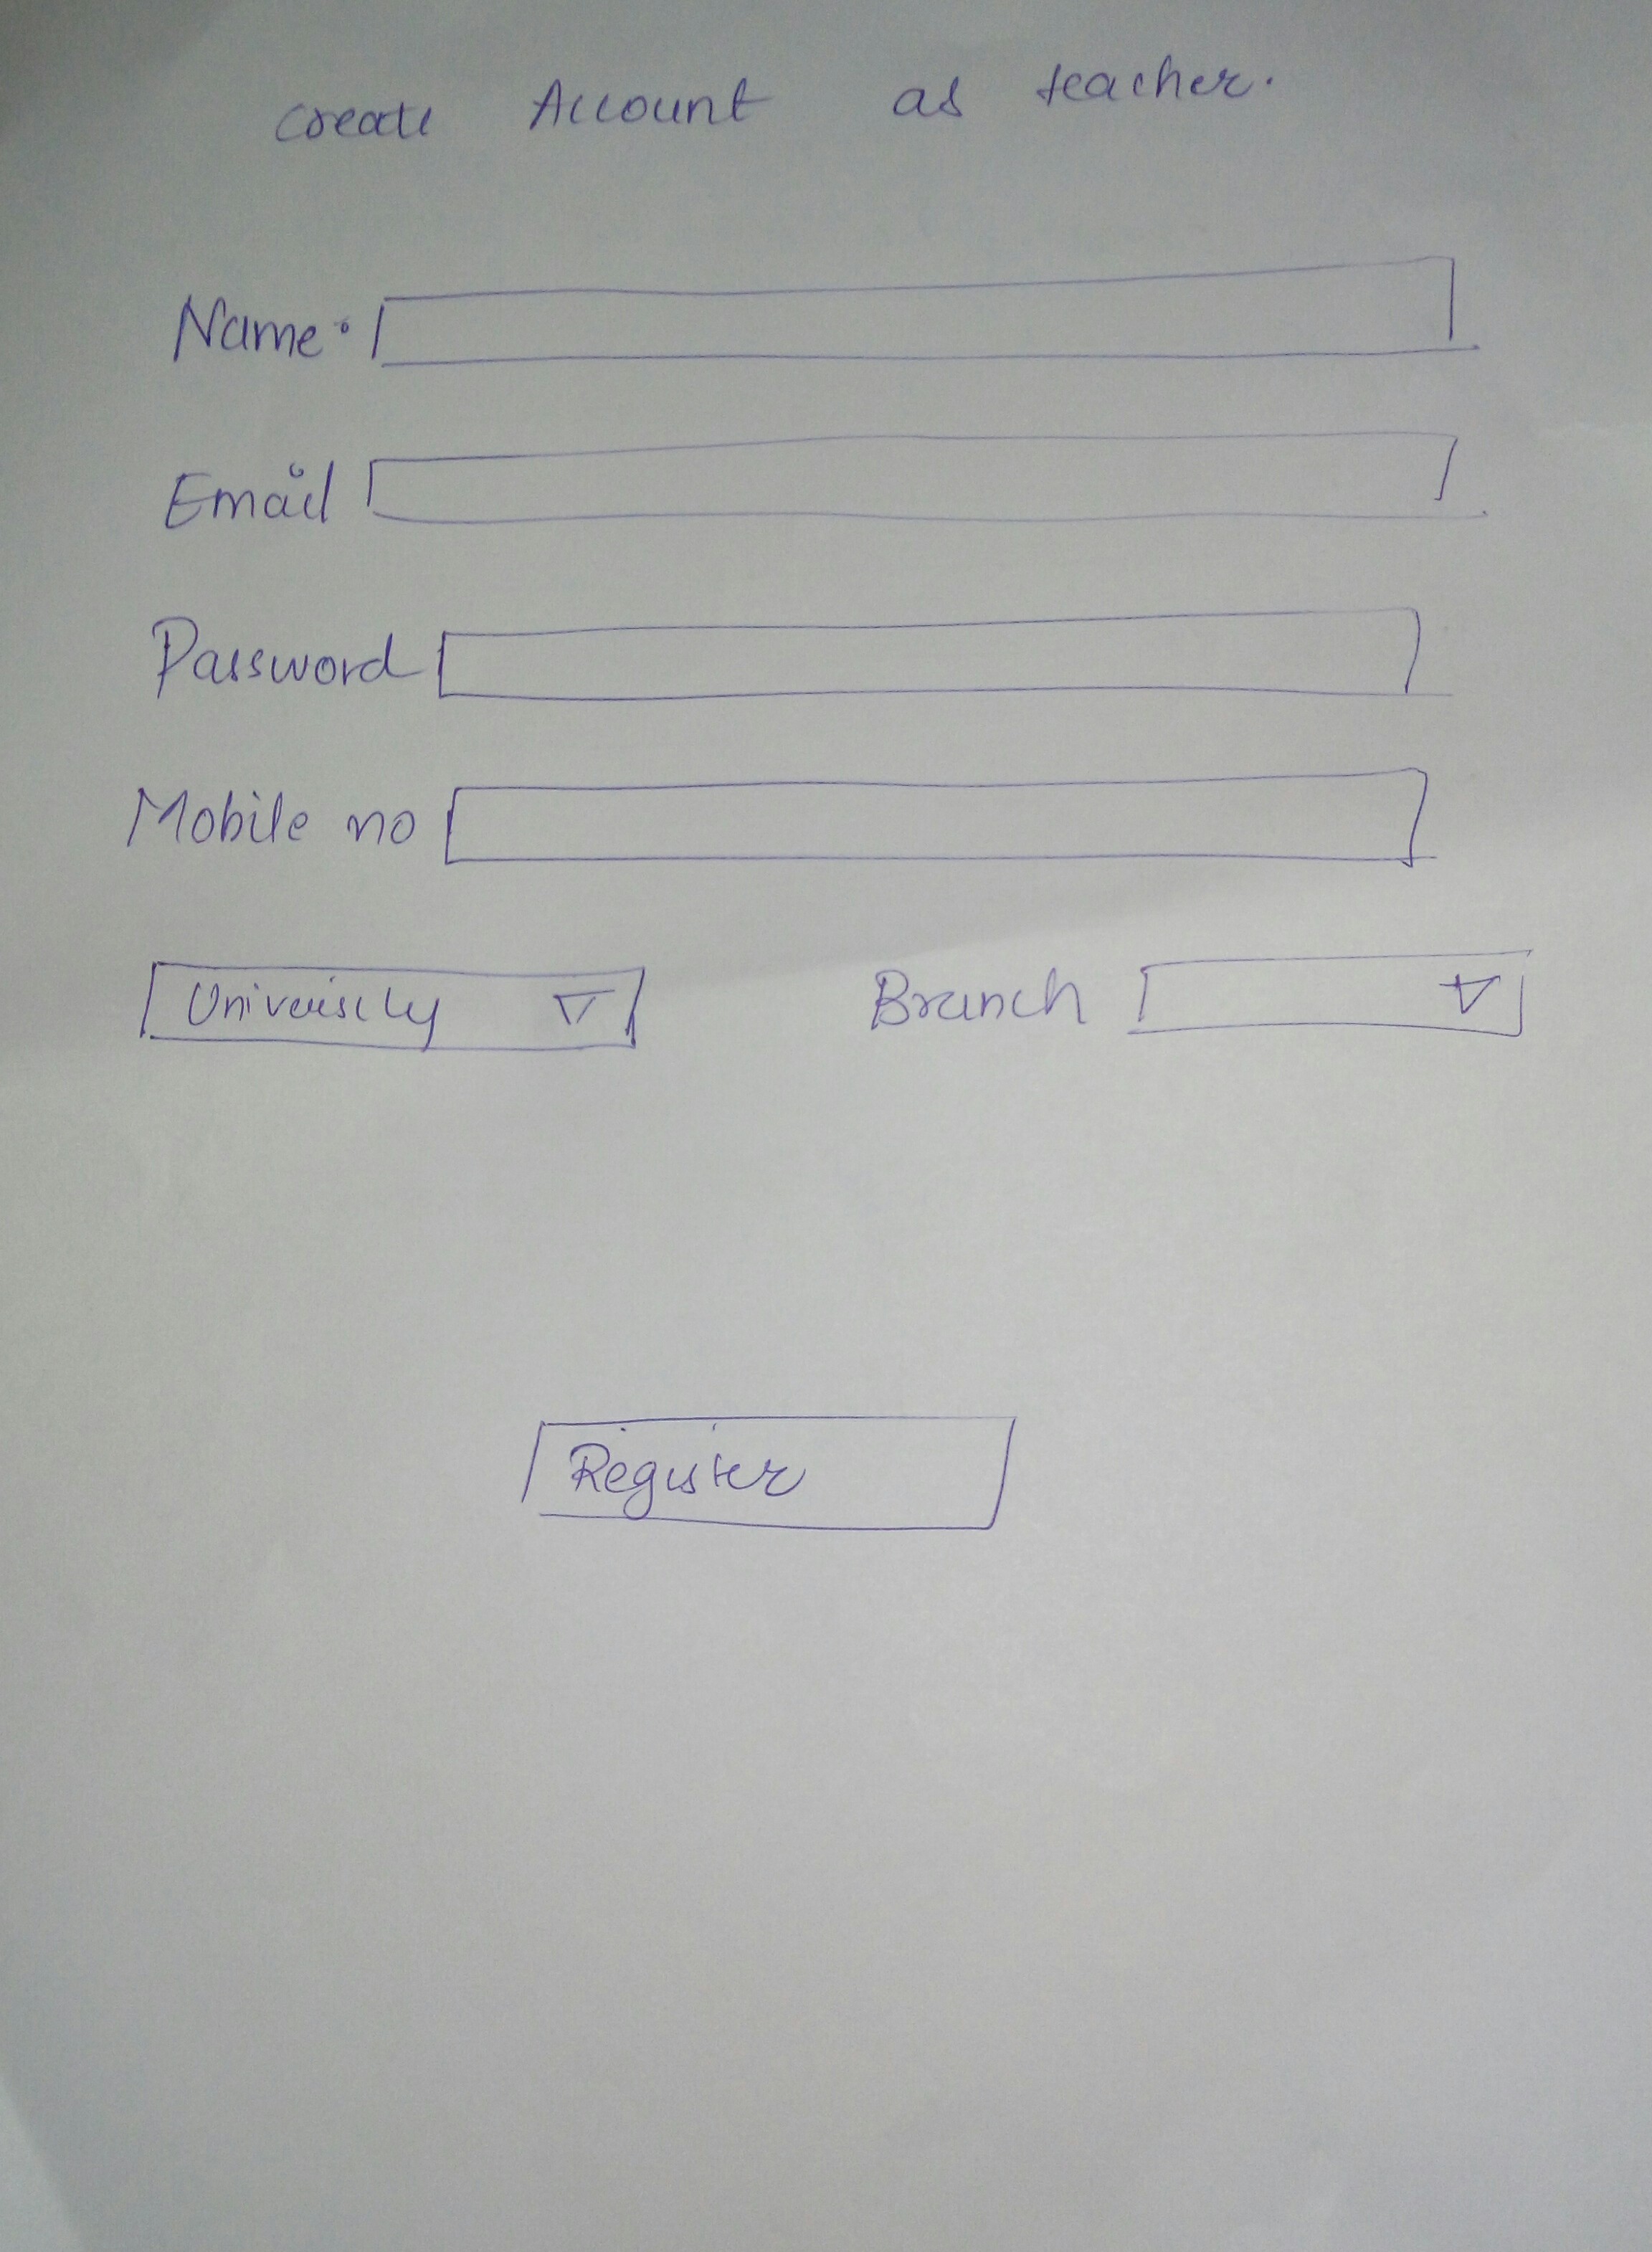 create Account as teacher.
Name:
Email
Password
Mobile no
University Branch
Register